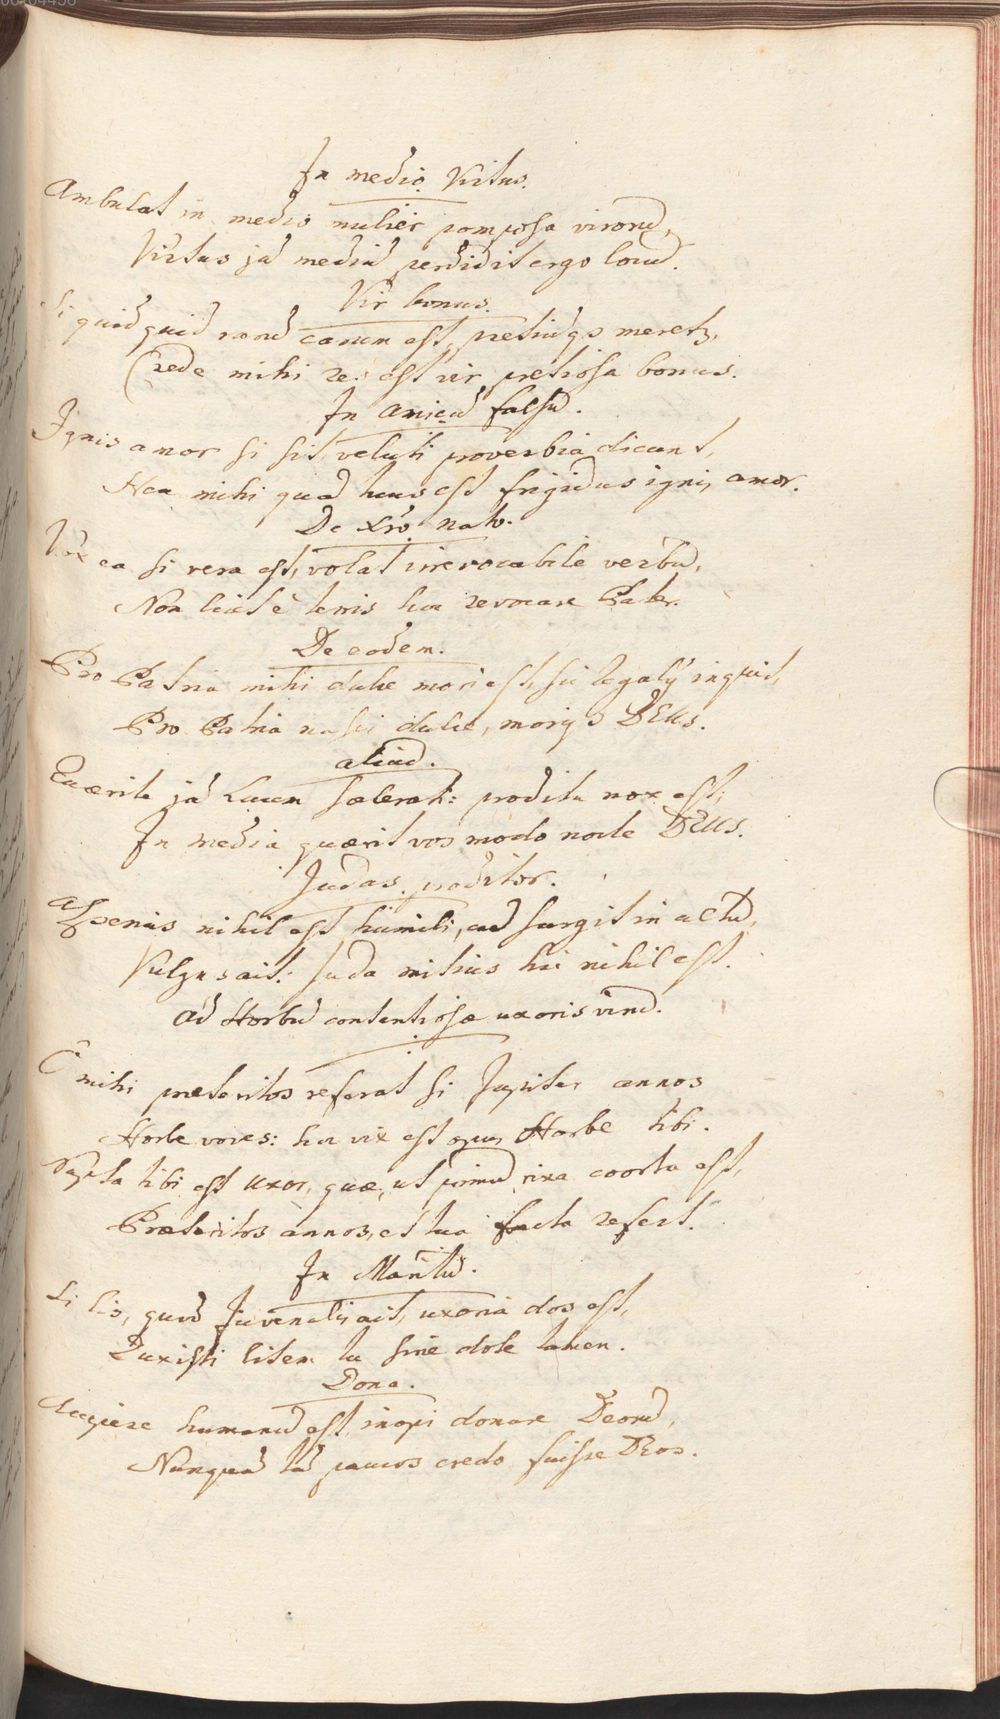 In medio Virtus.
Ambulat in medio mulier pomposa virorũ,
Virtus jã mediũ perdidit ergo locũ.
Vir bonus.
Si quidquid rarũ carum est, pretiũqȝ meretȝ,
Crede mihi res est vir pretiosa bonus.
In amicũ falsũ.
Ignis amor si sit, veluti proverbia dicunt,
Heu mihi quã tuus est frigidus ignis amor.
De Xr̃o nato.
Vox ea si vera est, volat irrevocabile verbũ,
Non licuit è terris huc revocare Pater.
De eodem.
Pro Patria mihi dulce mori est, sic legalis inquit,
Pro Patria nasci dulce, moriqȝ DEUS.
aliud.
Quærite jã Lucem scelerati: prodita nox est;
In media quærit vos modo nocte DEUS.
Judas proditor.
Asperius nihil est humili, cũ surgit in altũ,
Vulgus ait: Juda mitius hic nihil est.
Ad Horbũ contentiosæ uxoris virũ.
Ô mihi præteritos referat si Jupiter annos
Horbe voves: hoc vix est opus Horbe tibi.
Nupta tibi est uxor, quæ, ut primũ rixa coorta est,
Præteritos annos, et tua facta refert.
In Maritũ.
Si lis, quod Juvenalis ait, uxoria dos est,
Duxisti litem tu sine dote tamen.
Dona.
Accipere humanũ est, inopi donare Deorũ,
Nunquã tã paucos credo fuisse DEos.